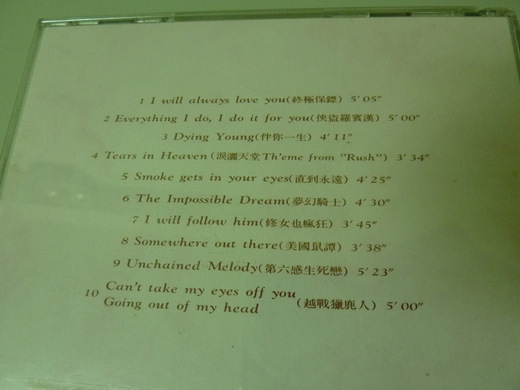 1 I will always love you(終極保鏢) 5'05"
2 Everything I do, I do it for you(俠盜羅賓漢) 5'00"
3 Dying Young(伴你一生) 4'11"
4 Tears in Heaven(淚灑天堂Th'eme from "Rush") 3'34"
5 Smoke gets in your eyes(直到永遠) 4'25"
6 The Impossible Dream(夢幻騎士) 4'30"
7 I will follow him(修女也瘋狂) 3'45"
8 Somewhere out there(美國鼠譚) 3'38"
9 Unchained Melody(第六感生死戀) 5'23"
10 Can't take my eyes off you
Going out of my head (越戰獵鹿人) 5'00"